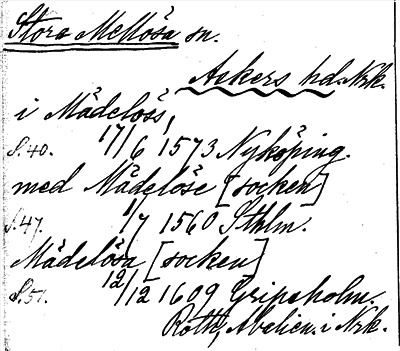 Stora Mellösa sn.
Askers hd. Nrk.
i Mädeloss,
S. 40. 17/6 1573 Nyköping.
med Mädelöse [socken]
S. 47. 1/7 1560 Sthlm.
Mädelösa [socken]
S. 51. 12/12 1609 Gripsholm.
Roth, Abelien. i Nrk.